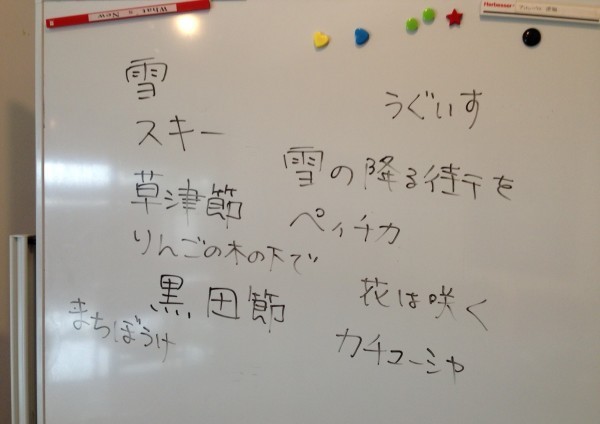 What's New
Herbesser
雪
スキー
草津節
りんごの木の下で
黒田節
まちぼうけ
うぐいす
雪の降る街を
ペィチカ
花は咲く
カチューシャ